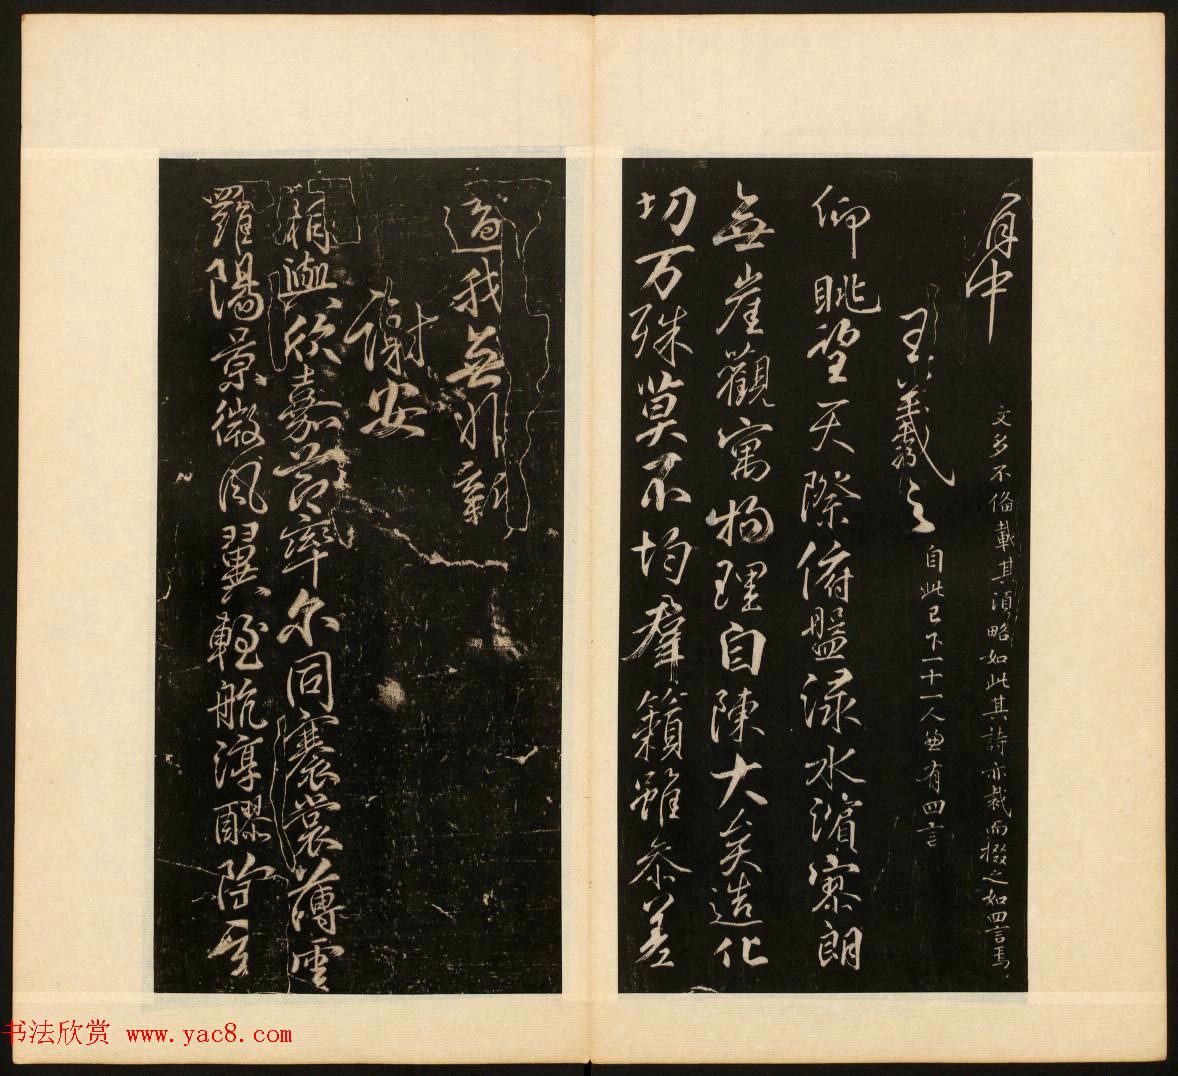 有中
文多不偹載其湏略如此其詩亦裁而掇之如四言焉
王羲之
自此已下一十一人各有四言
仰眺望天際俯盤淥水濵寥朗
無崖觀寓物理自陳大矣造化
切万殊莫不均群籟雖参差
適我無非新
謝安
相與欣嘉節率尔同褰裳薄雲
羅陽景微風翼輕航淳醪陶玄
书法欣赏 www.yac8.com